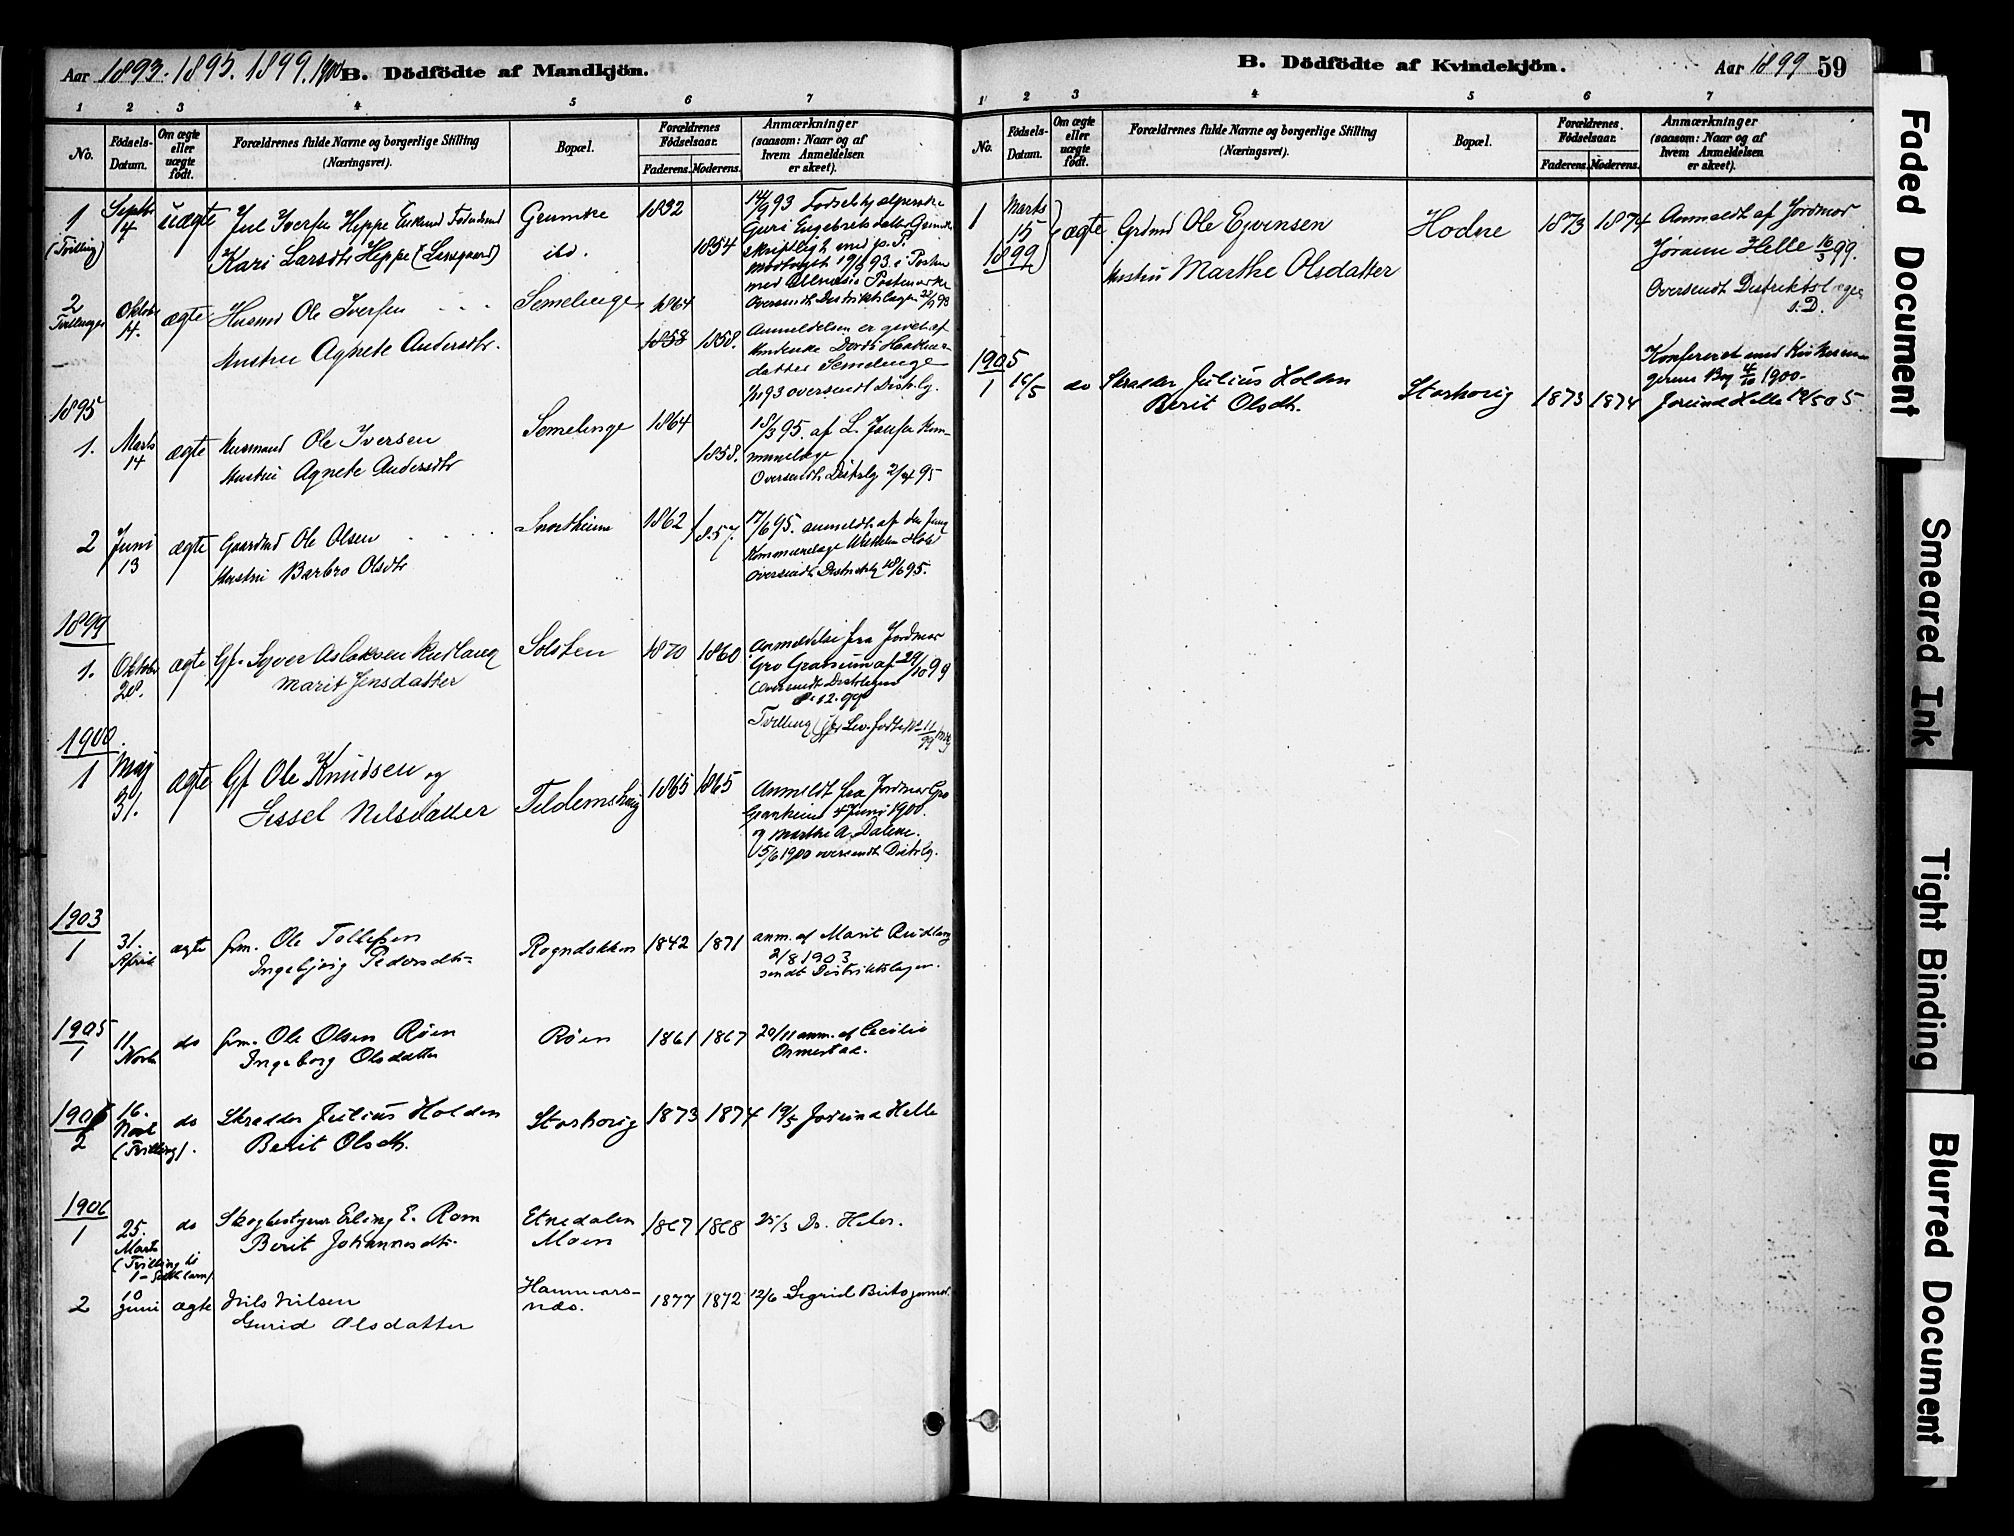 Aar 1893. 1895. 1899. 1900 B. Dödfödte af Mandkjön.
1 2 3 4 5 6 7
No.
Födsels-
Datum.
Om ægte
eller
uægte
födt.
Forældrenes fulde Navne og borgerlige Stilling
(Næringsvei).
Bopæl.
Forældrenes
Födselsaar.
Faderens. Moderens.
Anmærkninger
(saasom: Naar og af
hvem Anmeldelsen
er skeet).
1 Septbr 14 uægte Juel Iversen Heppe
(Tvilling) Kari Larsdtr Heppe
Grumke 1832
ibd. 1854
14/9 93 Fødselshjælperske
Guri Engebretsdatter
skriftligt med p. P.
modtaget 19/9 93. i Posten
Oversendt Distriktslægen 22/9 93
2 Oktobr 14. ægte Husmd Ole Iversen
Tvillinger Hustru Agnete Andersdtr.
Semelenge 1864
1858 1858.
Anmeldelsen er givet af
datter Semelenge
93 oversendt Distrlg.
1895
1. Marts 14 ægte Husmand Ole Iversen
Hustru Agnete Andersdtr
Semelenge 1864
1858.
18/3 95. af L.
munelæge
Oversendt Distrlg 2/4 95
2 Juni 13 ægte Gaardmd Ole Olsen
Hustru Barbro Olsdtr
1862 1857.
17/6 95. anmeldt af
Kommunelæge
Oversendt Distriktslg 18/6 95.
1899
1. Oktober 28. ægte Gf. Syver Aslaksen Rudlang
Marit Jensdatter
Solsten 1870 1860
Anmeldelse fra Jordmor
Gro Granum af 29/10 99
Oversendt Distrlægen
12. 99
Tvilling
1900.
1 Maj 31. ægte Gf Ole Knudsen og
Sissel Nilsdatter
1865 1865
Anmeldt fra Jordmor Gro
4 Juni 1900.
og Marthe A. Dalene.
5/6 1900 oversendt Distrlg.
1903
1 31. April ægte frm. Ole Tollefsen
Ingebjørg Pedersdtr
Rogndokken 1842 1871
anm. af Marit Rudlang
2/8 1903
sendt Distriktslægen.
1905
1 11. Novbr do frm. Ole Olsen Röen
Ingeborg Olsdatter
Röen 1861 1867
20/11 anm. af Cecilie
Onmestad.
2 16. do Skrædder Julius Holden
(Tvilling). Berit Olsdtr.
Storhorig 1873 1874 19/5 Joreind Helle
1906
1 25. Marts do Skogbestyrer Erling E. Rom
Berit Johannesdtr.
(Tvilling til
Etnedalen
Moen
1867 1868 25/3 Dr.
2 10 Juni ægte Nils Nilsen
Gurid Olsdatter
1877 1872 12/6 Sigrid
B. Dödfödte af Kvindekjön. Aar 1899 59
1 2 3 4 5 6 7
No.
Födsels-
Datum.
Om ægte
eller
uægte
födt.
Forældrenes fulde Navne og borgerlige Stilling
(Næringsvei).
Bopæl.
Forældrenes
Födselsaar.
Faderens. Moderens.
Anmærkninger
(saasom: Naar og af
hvem Anmeldelsen
er skeet).
1 Marts 15 1899 ægte Grdmd Ole Ejvensen
Hustru Marthe Olsdatter
Hodne 1873 1874
Anmeldt af Jordmor
Joraun Helle 16/3 99.
Oversendt Distriktslægen
s. D.
Konfereret med
gerens Bog 4/10 1900.
1905
1 16/5 do Skrædder Julius Holden
Berit Olsdtr.
Storhorig 1873 1874 Joreind Helle 19/5 05.
Faded Document
Smeared Ink
Tight Binding
Blurred Document